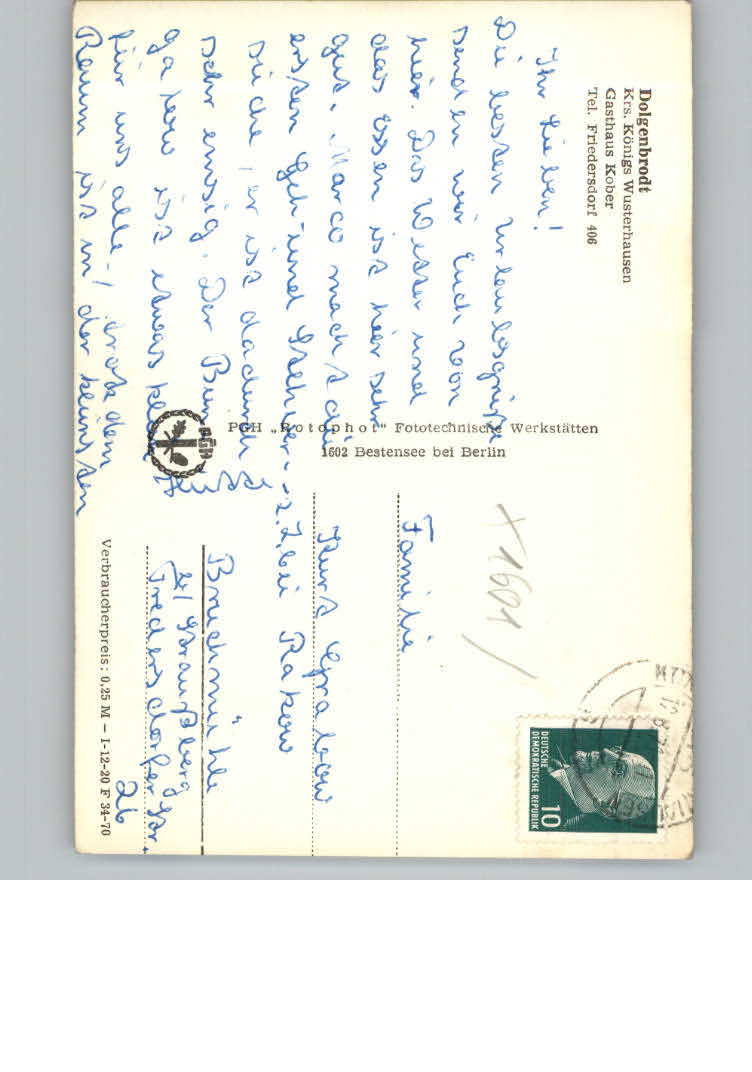 Dolgenbrodt
Krs. Königs Wusterhausen
Gasthaus Kober
Tel. Friedersdorf 406
Ihr Lieben!
Die besten Urlaubsgrüße
senden wir Euch von
hier. Das Wetter und
das Essen ist hier sehr
gut. Marco macht die
ersten Geh- und Stehver-
suche, er ist dadurch
sehr emsig. Der Bun
galow ist etwas klein
für uns alle, trotzdem
Raum ist in der kleinsten
PGH „Rotophot“ Fototechnische Werkstätten
1602 Bestensee bei Berlin
PGH
X 1601
Familie
Kurt Grabow
z. Z. bei Rakow
Bruchmühle
b/ Straußberg
Fredersdorfer Str.
26
DEUTSCHE
DEMOKRATISCHE REPUBLIK
10
Verbraucherpreis: 0,25 M — I-12-20 F 34-70